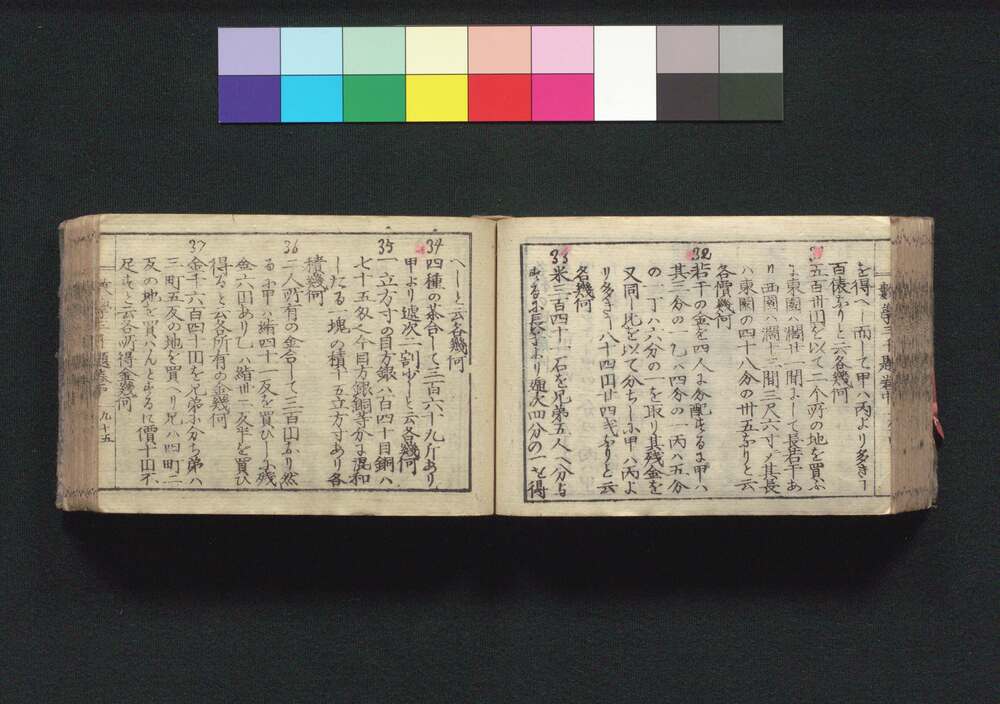 を得へし而して甲ハ丙より多きこ
百俵なりと云各幾何
31
五百卅山を以て二个所の地を買ふ
東圍ハ濶廿二間にして長若干あ
り西圍ハ濶十二間三尺六寸ノ其長
ハ東圍の四十八分の卅五なりと云
各價幾何
32
若干の金を四人に分配するに甲ハ
其三分の一乙ハ四分の一丙ハ五分
の一丁ハ六分の一を取り其残金を
又同し比を以て分ちしに甲ハ丙よ
り多き
八十四円廿四戋なりと云
各幾何
33
米三百四十一石を兄弟五人へ分与
するに長子より逓次四分の一を得
へしと云各幾何
34
四種の茶合して三百六十九斤あり
甲より逓次二割
と云各幾何
35
一立方寸の目方銀ハ百四十目銅ハ
七十五匁
今目方銀銅等分に混和
したる一塊の積十五立方寸あり各
積幾何
36
二人所有の金合して三百円なり然
るに甲ハ縮四十一反を買ひしに残
金六円あり乙ハ縮卅二反半を買ひ
得ると云各所有の金幾何
37
金千六百四十円を兄弟に分ち弟ハ
三町五反の地を買へり兄ハ四町二
反の地を買ハんとするに價十円不
足すと云各所得金幾何
九十五